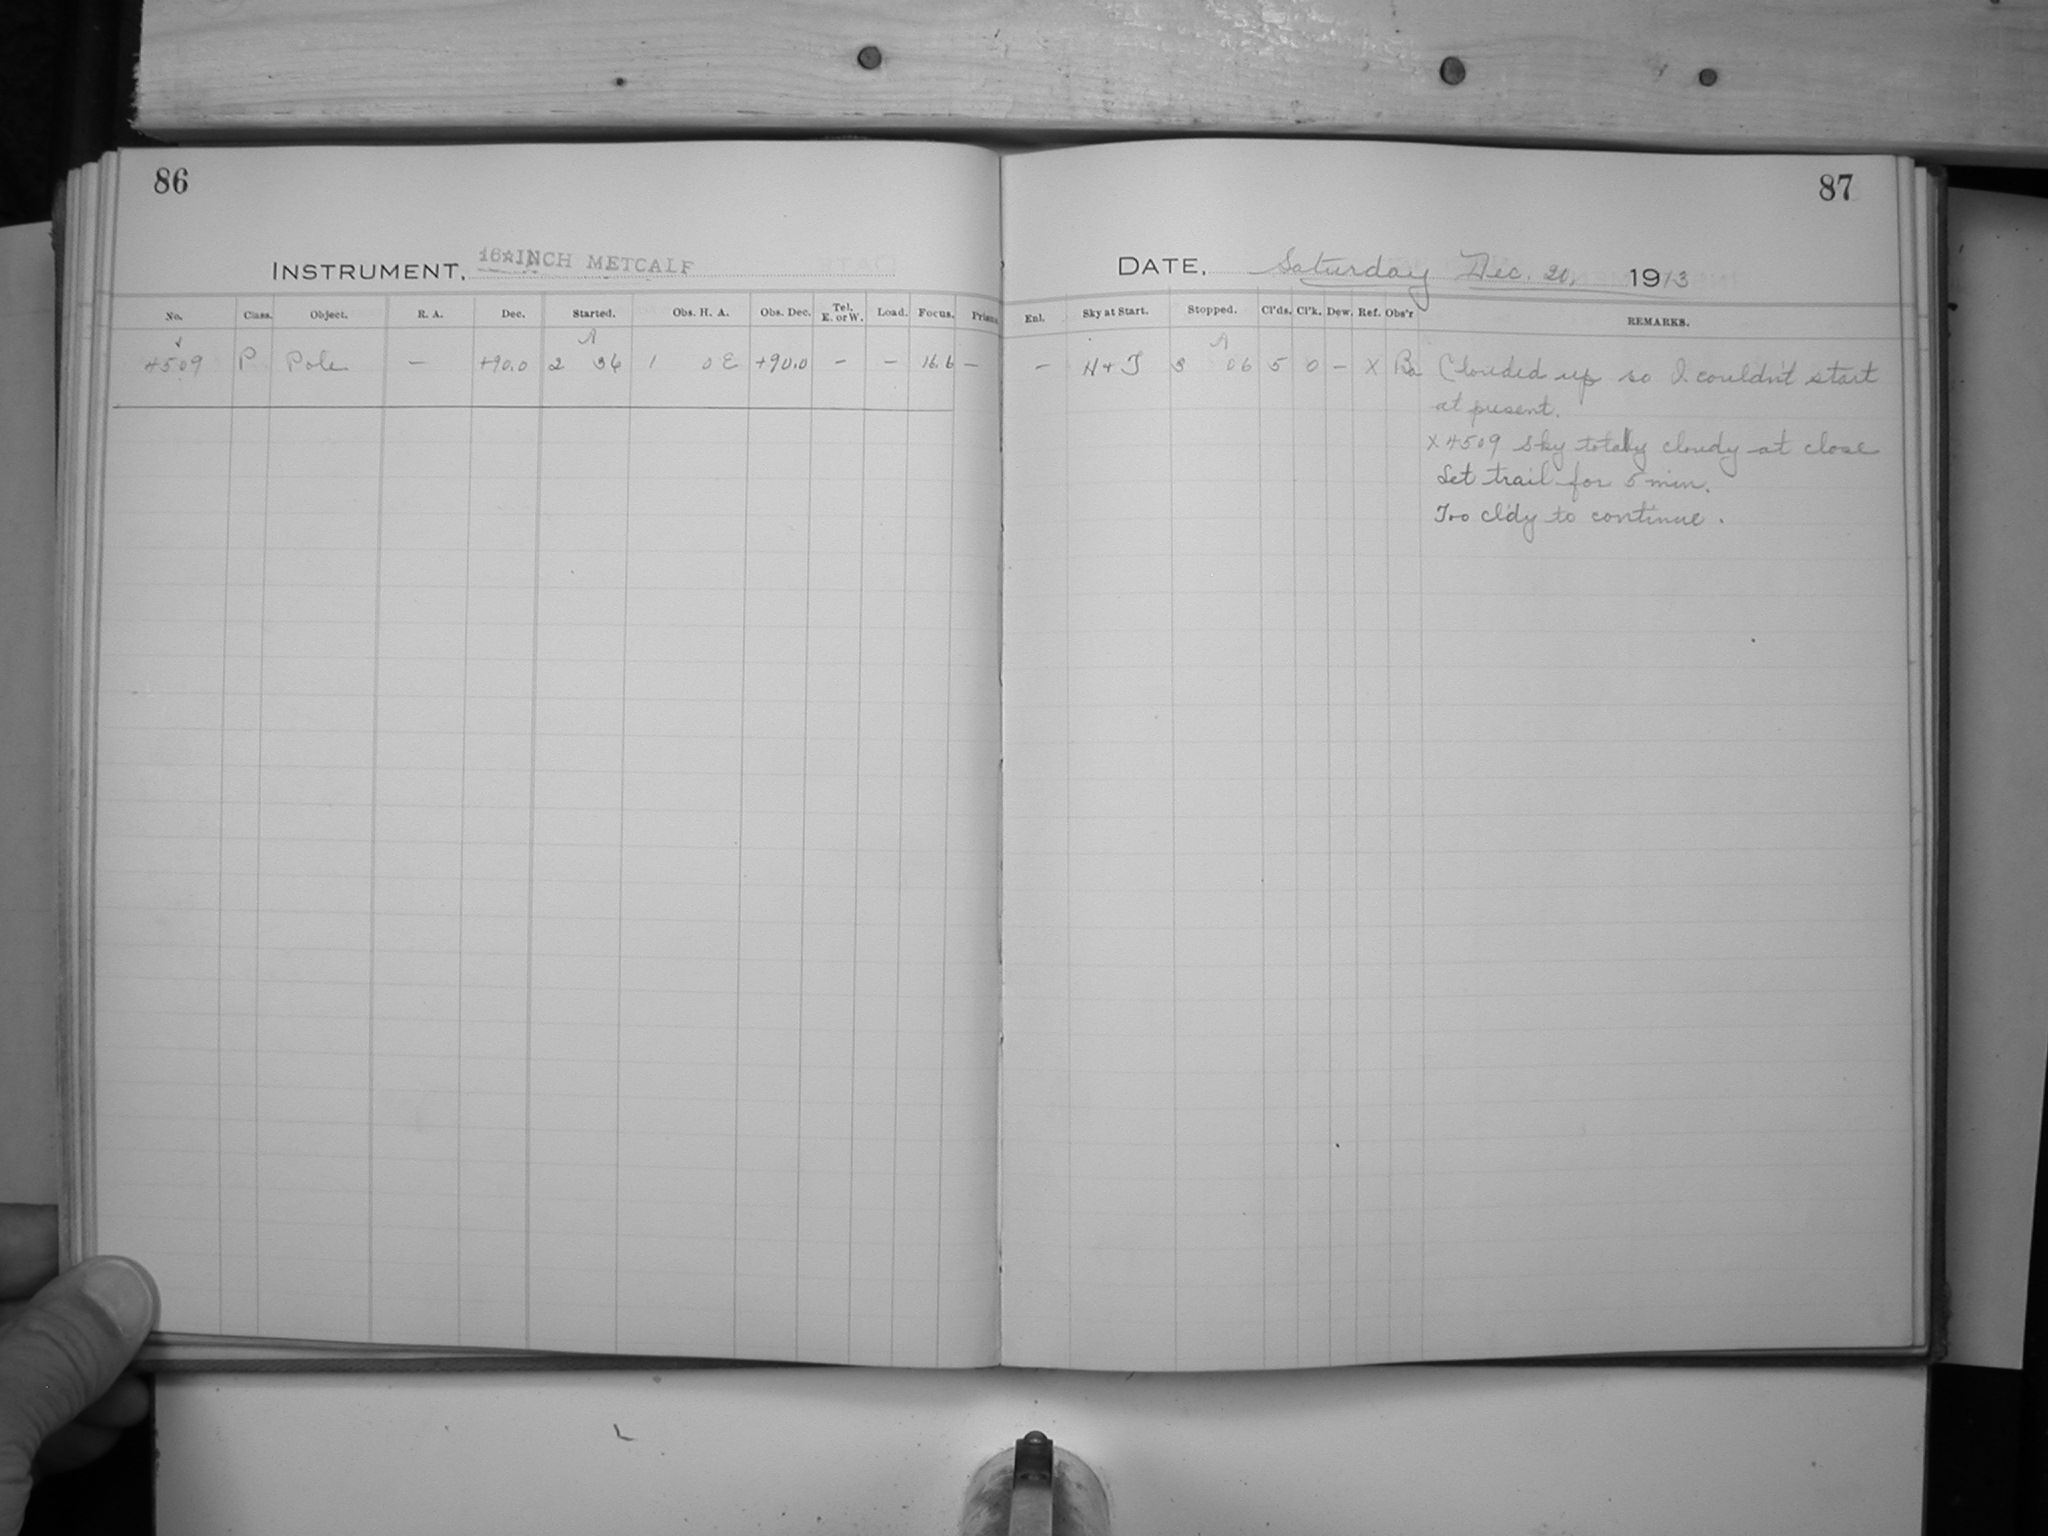 86
INSTRUMENT, 16-INCH METCALF
No. Class. Object. R. A. Dec. Started. Obs. H. A. Obs. Dec. Tel. E. or W. Load. Focus. Prism.
A
4509 P Pole — +90.0 2 36 1 0 E +90.0 — — 16.6 —
87
DATE, Saturday Dec. 20, 1913
Enl. Sky at Start. Stopped. Cl'ds. Cl'k. Dew. Ref. Obs'r REMARKS.
A
— H + T 3 06 5 0 — X Ba Clouded up so I couldn't start
at present.
X 4509 Sky totally cloudy at close
Set trail for 5 min.
Too cldy to continue.